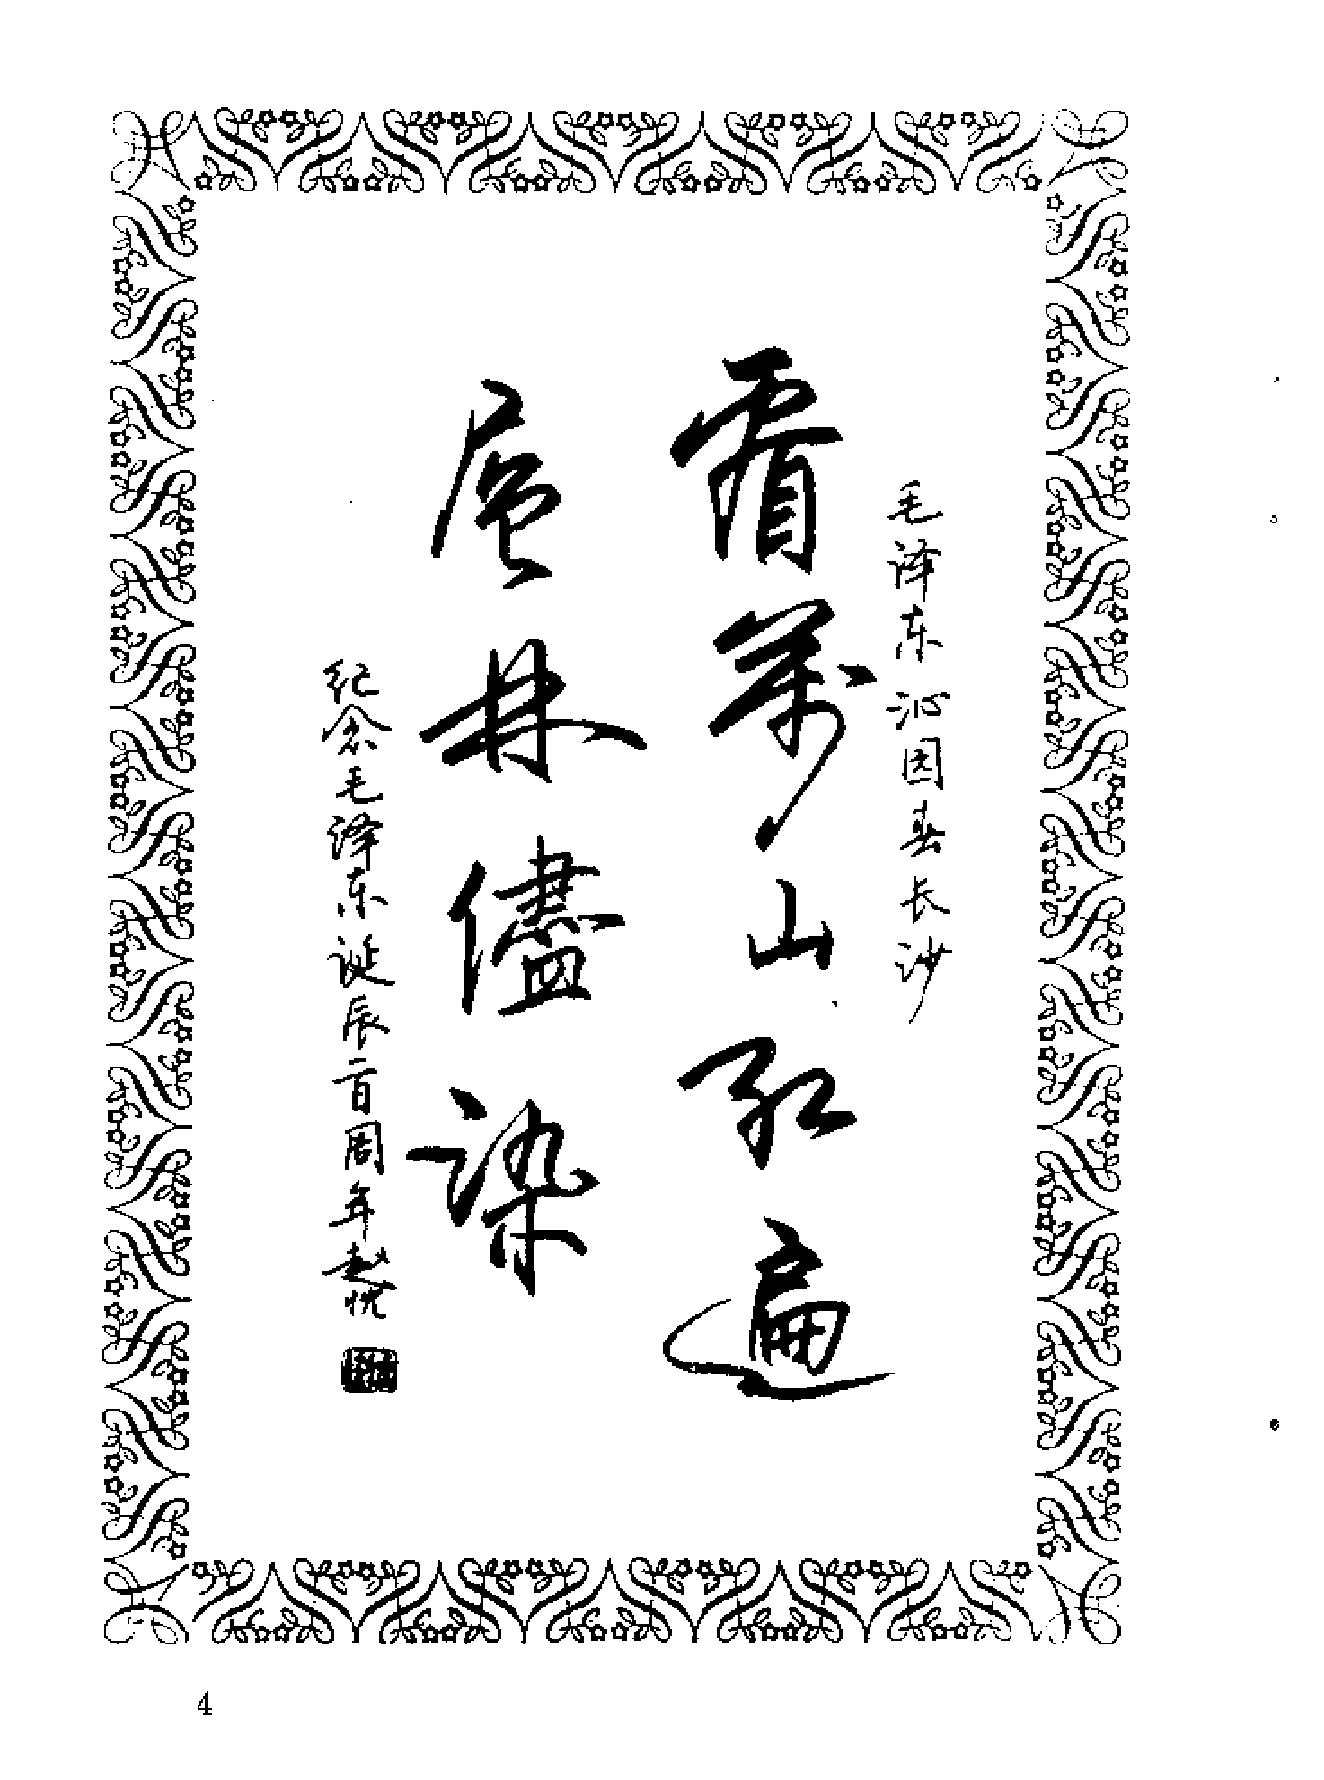 毛泽东沁园春长沙
看萬山红遍
层林儘染
纪念毛泽东诞辰一百周年赵
4